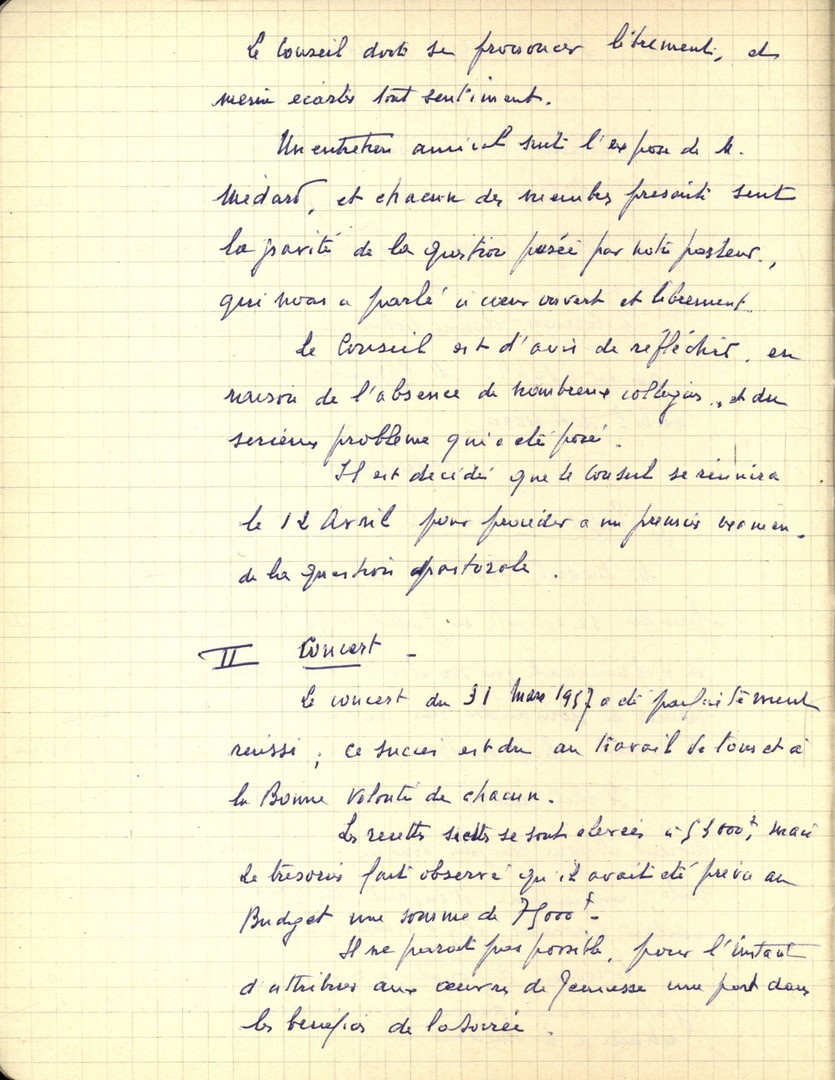 Le Conseil doit se prononcer librement, et
même écarter tout sentiment.
Un entretien amical suit l'exposé de M.
Médard, et chacun des membres présents sent
la gravité de la question posée par notre pasteur,
qui nous a parlé à cœur ouvert et librement.
Le Conseil est d'avis de réfléchir, en
raison de l'absence de nombreux collègues, et du
serieux problème qui a été posé.
Il est décidé que le Conseil se réunira
le 12 Avril pour procéder a un premier examen
de la question pastorale.
II Concert -
Le concert du 31 Mars 1957 a été parfaitement
reussi ; ce succès est du au travail de tous et à
la Bonne Volonté de chacun.
Les recettes se sont elevées à 000f, mais
le trésorier fait observé qu'il avait été prévu au
Budget une somme de 75000f -
Il ne parait pas possible, pour l'instant
d'attribuer aux œuvres de Jeunesse une part dans
les benefices de la Soirée.